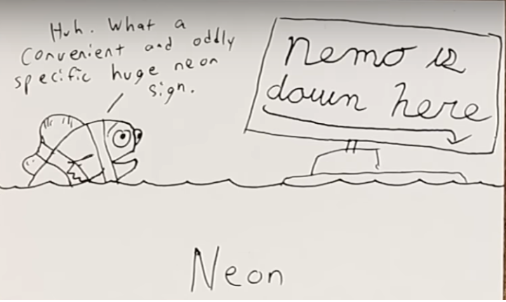 Huh. What a
convenient and oddly
specific huge neon
sign.
nemo is
down here
Neon